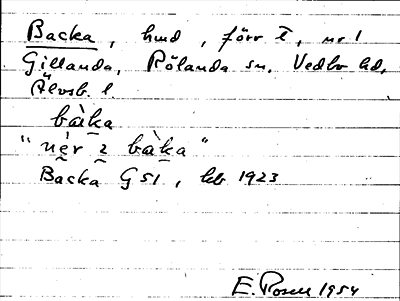 Backa, hmd, förr t, nr 1
Gillanda, Rölanda sn, Vedbo hd,
Älvsb. l.
bàka
"nér i bàka"
Backa G51, leb 1923
E. Rosell 1954